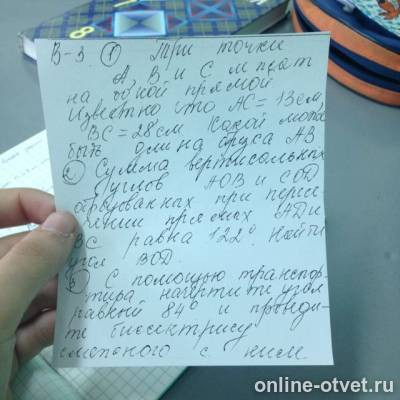 В-3. ① Три точки
А, В и С лежат
на одной прямой
Известно что АС = 13 см
ВС = 28 см Какой может
быть длина отрезка АВ
② Сумма вертикальных
углов АОВ и СОD
образованных при пересе
чении прямых АD и
ВС равна 122° Найти
угол ВОD.
③ С помощью транспор-
тира начертите угол
равный 84° и проведи-
те биссектрису
смежного с ним
online-otvet.ru